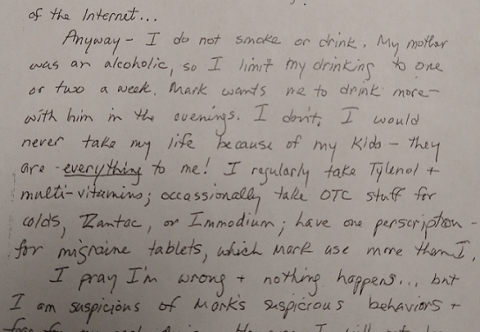 of the Internet...
Anyway - I do not smoke or drink. My mother
was an alcoholic, so I limit my drinking to one
or two a week. Mark wants me to drink more-
with him in the evenings. I don't. I would
never take my life because of my kids - they
are everything to me! I regularly take Tylenol +
multi-vitamins; occassionally take OTC stuff for
colds, Zantac, or Immodium; have one perscription -
for migraine tablets, which Mark use more than I.
I pray I'm wrong + nothing happens... but
I am suspicious of Mark's suspicious behaviors +